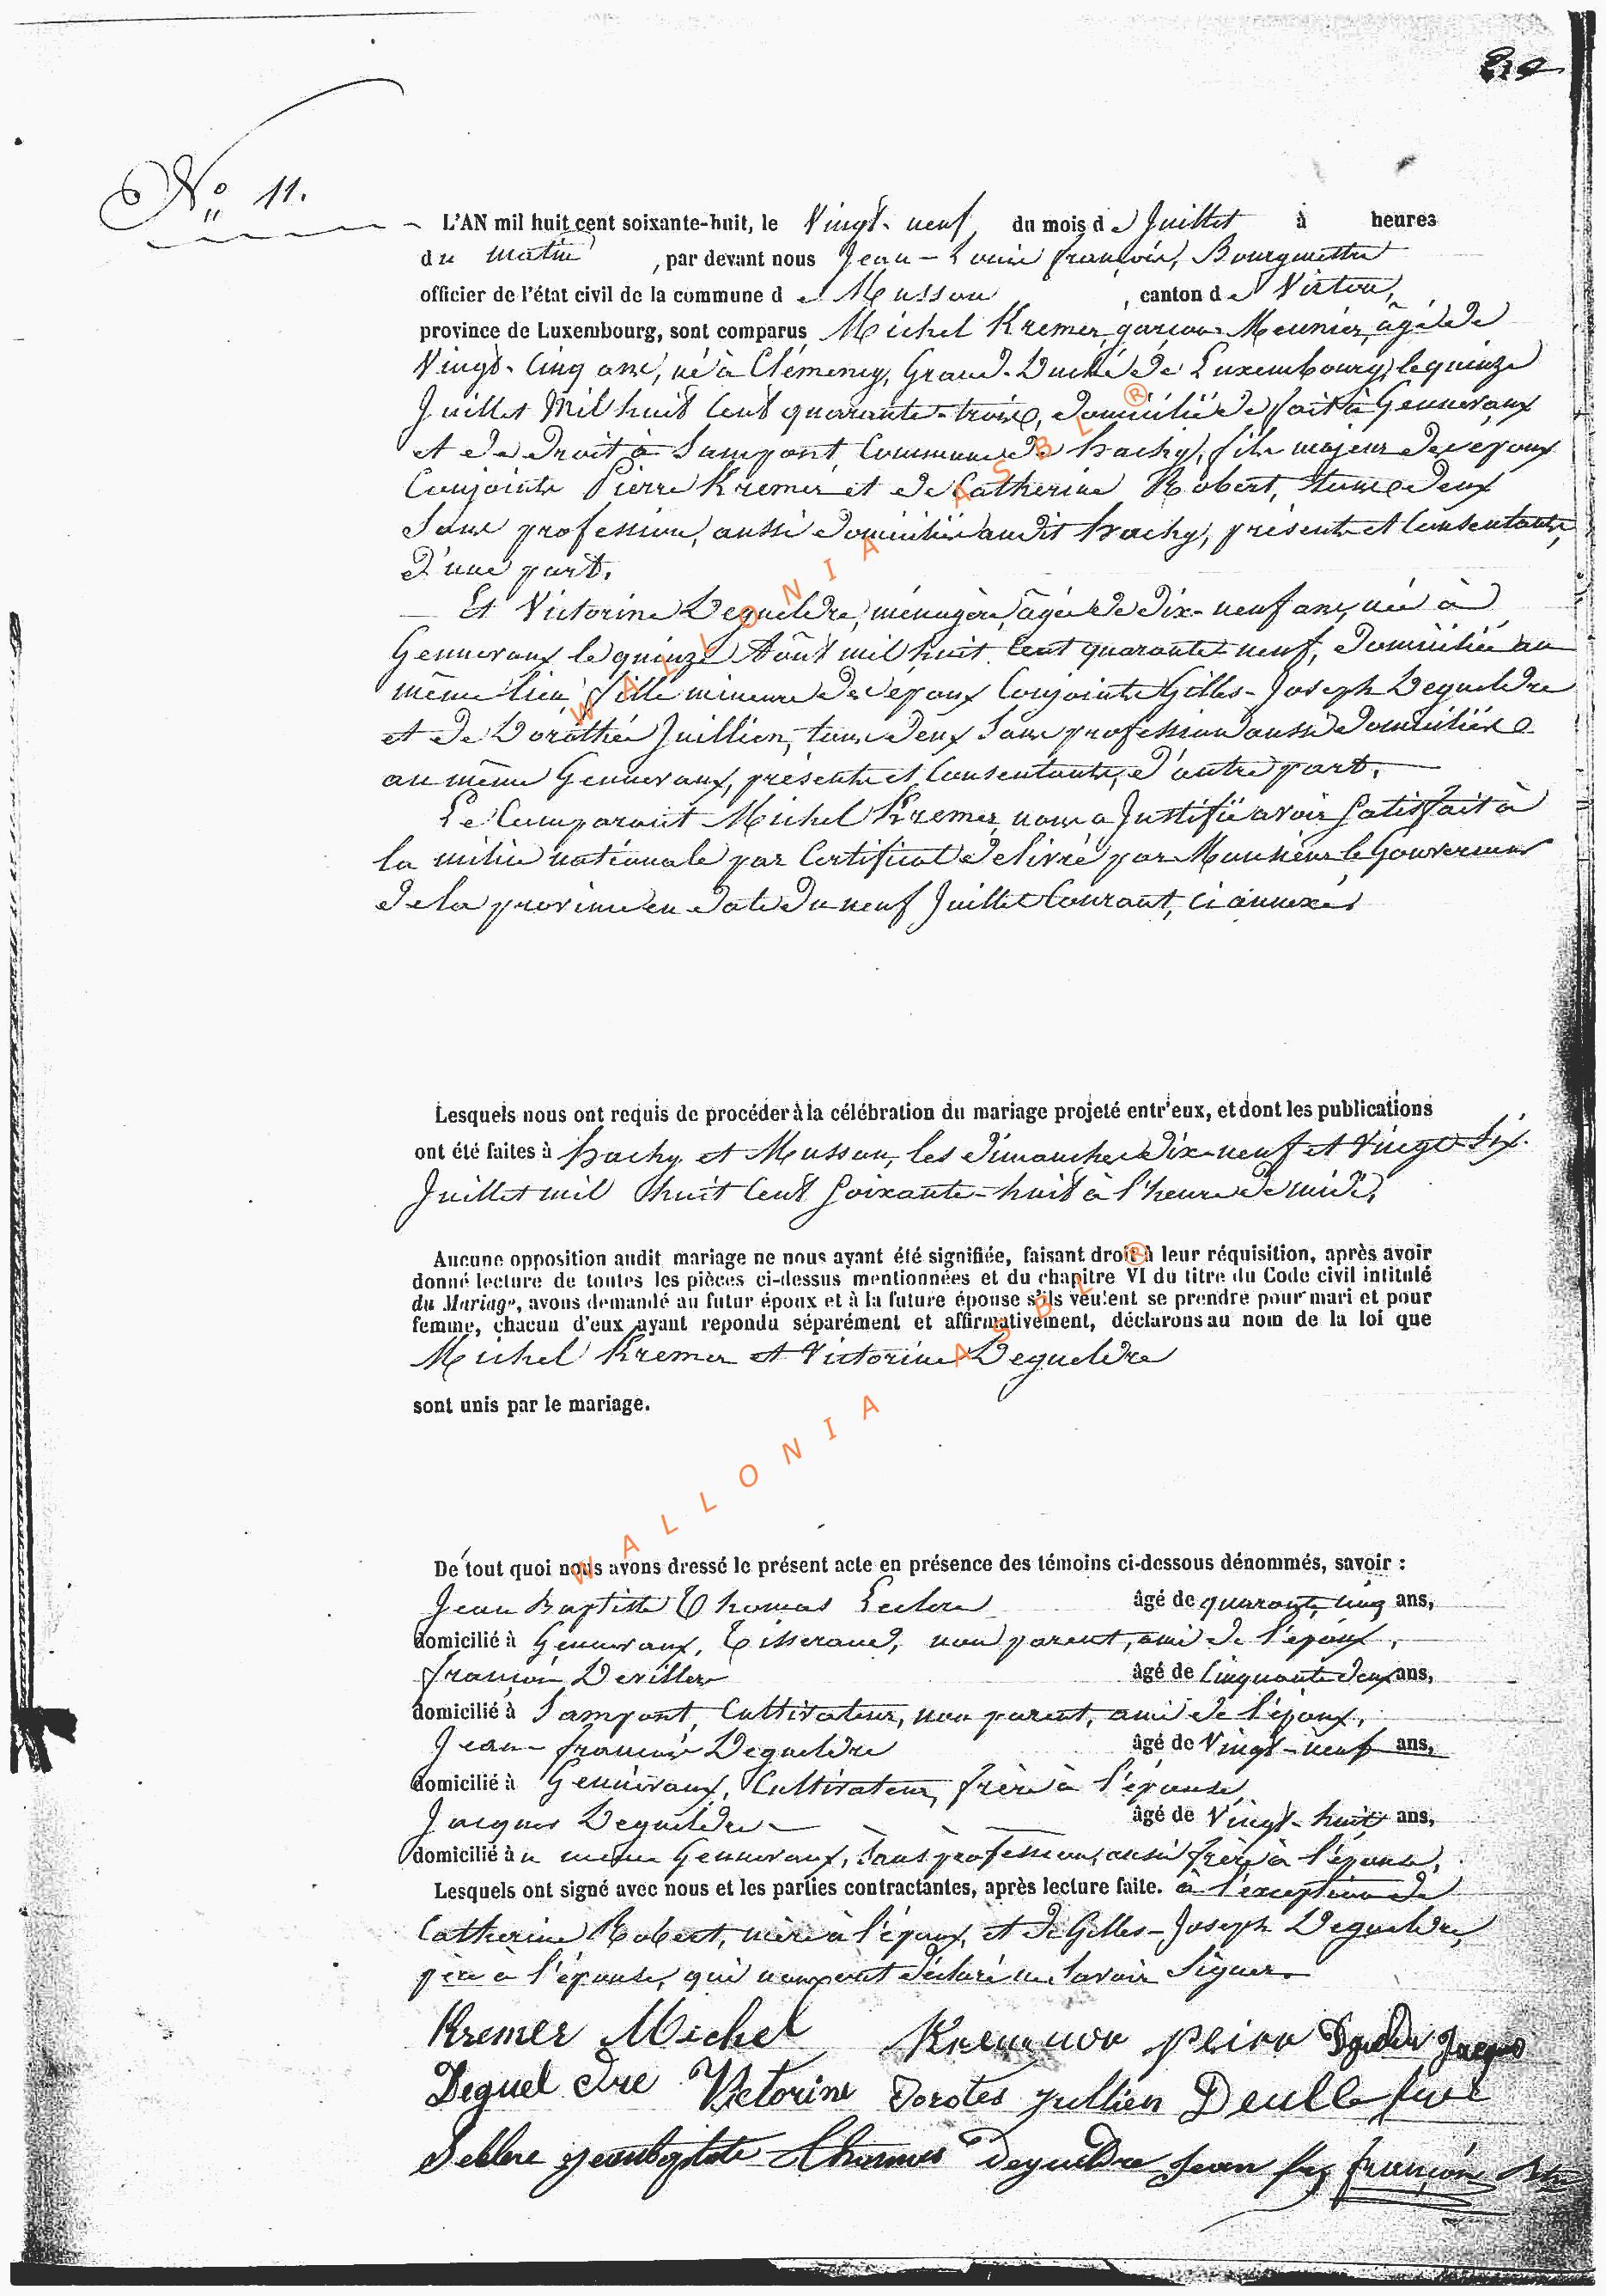 N° 11.
L'AN mil huit cent soixante-huit, le Vingt-neuf du mois de Juillet à heures
du matin, par devant nous Jean-Louis François, Bourgmestre
officier de l'état civil de la commune de Musson, canton de Virton,
province de Luxembourg, sont comparus Michel Kremer, garçon Meunier, âgé de
Vingt-Cinq ans, né à Clémency, Grand-Duché de Luxembourg, le quinze
Juillet Mil huit Cent quarante-trois, domicilié de fait à Gennevaux
et de droit à Sampont, Commune de Hachy, fils majeur des époux
Conjoints Pierre Kremer et de Catherine Robert, tous deux
Sans profession, aussi domiciliés audit Hachy, présents et Consentants,
d'une part.
Et Victorine Degueldre, ménagère, âgée de Dix-neuf ans, née à
Gennevaux le quinze Août mil huit Cent quarante-neuf, domiciliée au
même lieu, fille mineure des époux Conjoints Gilles-Joseph Degueldre
et de Dorothé Juillien, tous deux Sans profession aussi domiciliés
au même Gennevaux, présents et Consentants, d'autre part.
Le Comparant Michel Kremer, nous a Justifié avoir Satisfait à
la milice nationale par Certificat délivré par Monsieur le Gouverneur
de la province en date du neuf Juillet Courant, ci annexé
Lesquels nous ont requis de procéder à la célébration du mariage projeté entr'eux, et dont les publications
ont été faites à Hachy et Musson, les dimanches Dix-neuf et Vingt-Six
Juillet mil huit Cent Soixante-huit à l'heure de midi,
Aucune opposition audit mariage ne nous ayant été signifiée, faisant droit à leur réquisition, après avoir
donné lecture de toutes les pièces ci-dessus mentionnées et du chapitre VI du titre du Code civil intitulé
du Mariage, avons demandé au futur époux et à la future épouse s'ils veulent se prendre pour mari et pour
femme, chacun d'eux ayant repondu séparément et affirmativement, déclarons au nom de la loi que
Michel Kremer et Victorine Degueldre
sont unis par le mariage.
De tout quoi nous avons dressé le présent acte en présence des témoins ci-dessous dénommés, savoir :
Jean Baptiste Thomas Leclere âgé de quarante, cinq ans,
domicilié à Gennevaux, Tisserand, non parent, ami de l'époux,
François Deviller âgé de Cinquante deux ans,
domicilié à Sampont, Cultivateur, non parent, ami de l'époux,
Jean-François Degueldre âgé de Vingt-neuf ans,
domicilié à Gennevaux, Cultivateur, frère à l'épouse
Jacques Degueldre âgé de Vingt-huit ans,
domicilié au même Gennevaux, Sans profession, aussi frère à l'épouse,
Lesquels ont signé avec nous et les parties contractantes, après lecture faite. à l'exception de
Catherine Robert, mère à l'époux, et de Gilles-Joseph Degueldre,
père à l'épouse, qui nous ont déclaré ne Savoir Signer.
Kremer Michel
Deguel dre Victorine Dorotes Jullien
Jeanbaptiste Thomas Degueldre Jean François
WALLONIA ASBL ®
WALLONIA ASBL ®